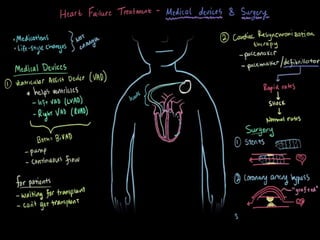 Heart Failure Treatment - Medical devices & Surgery
• Medications
• Life-style changes
not
enough
Medical Devices
① Ventricular Assist Device (VAD)
* helps ventricles
- left VAD (LVAD)
- Right VAD (RVAD)
Both = BiVAD
- pump
- continuous flow
for patients
- waiting for transplant
- can't get transplant
② Cardiac Resynchronization
therapy
- pacemaker
- pacemaker/defibrillator
Rapid rates
shock
Normal rates
Surgery
① Stents
② Coronary artery bypass
"grafted"